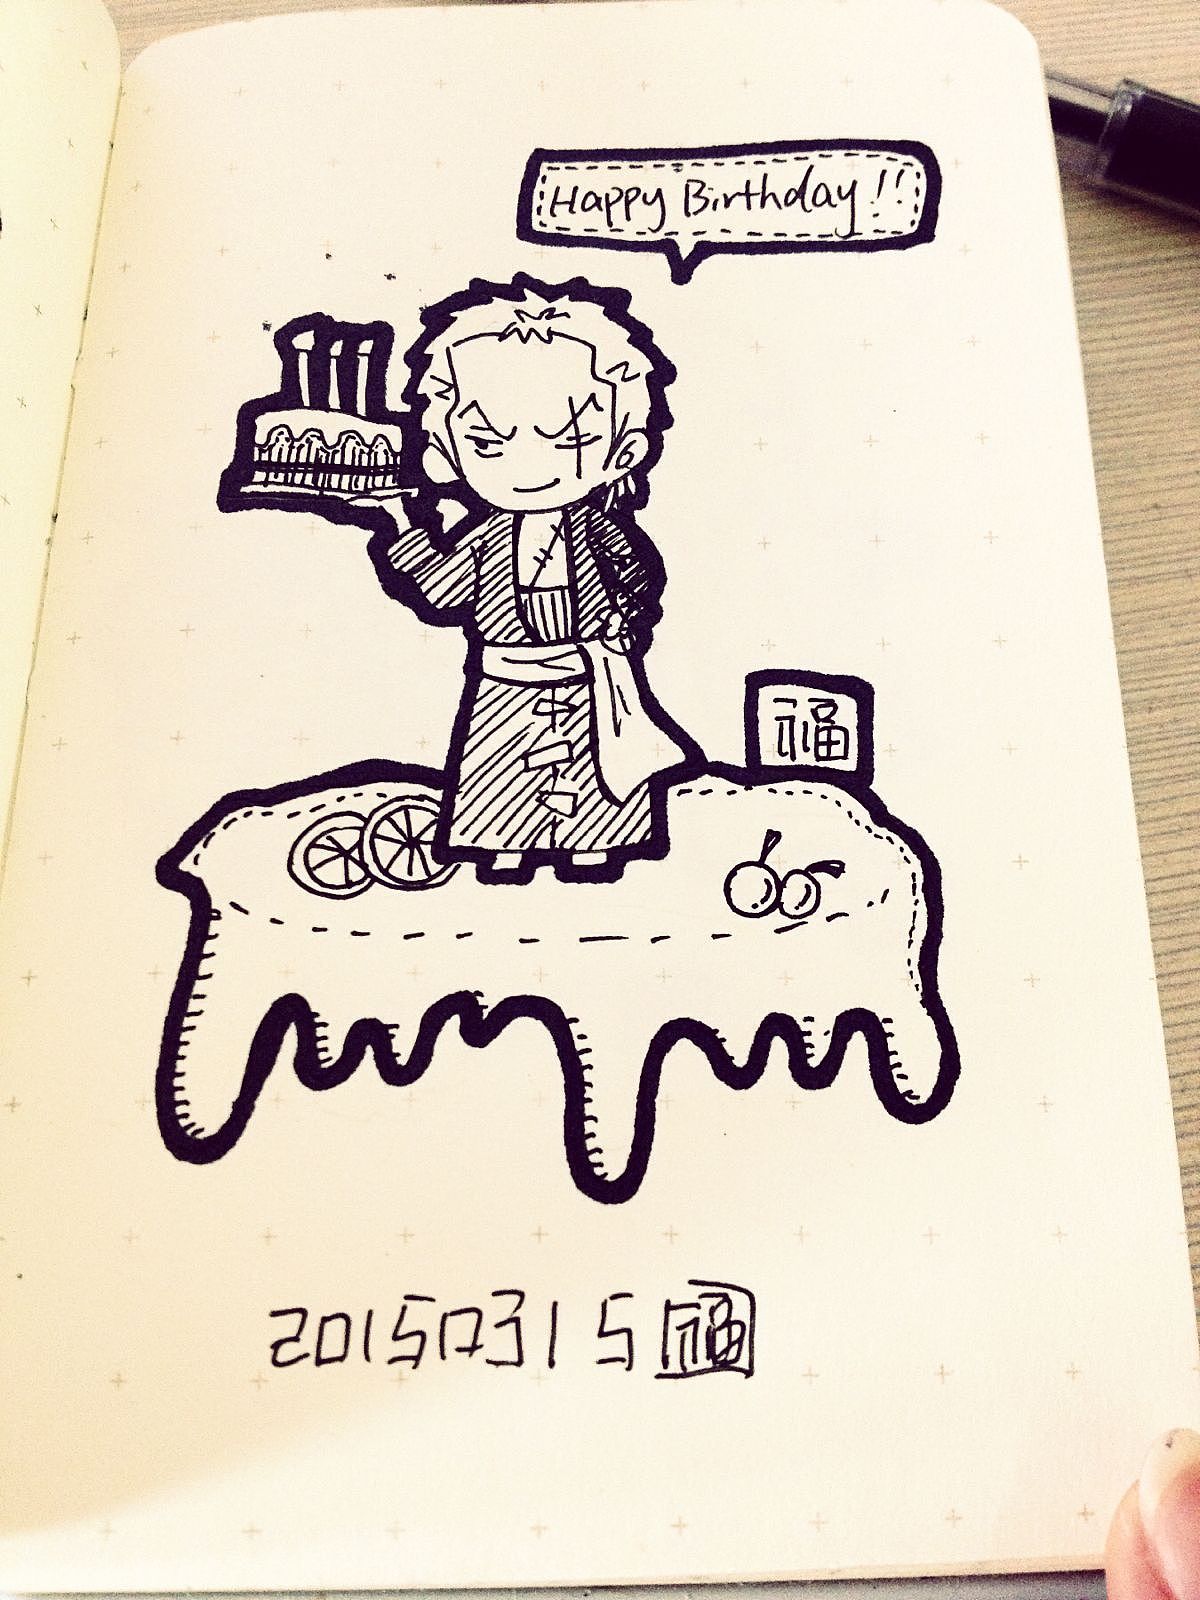 Happy Birthday!!
福
20150315 福